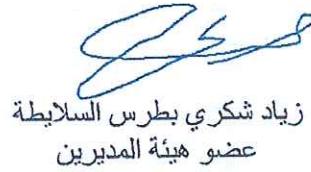 زياد شكري بطرس السلايطة
عضو هيئة المديرين